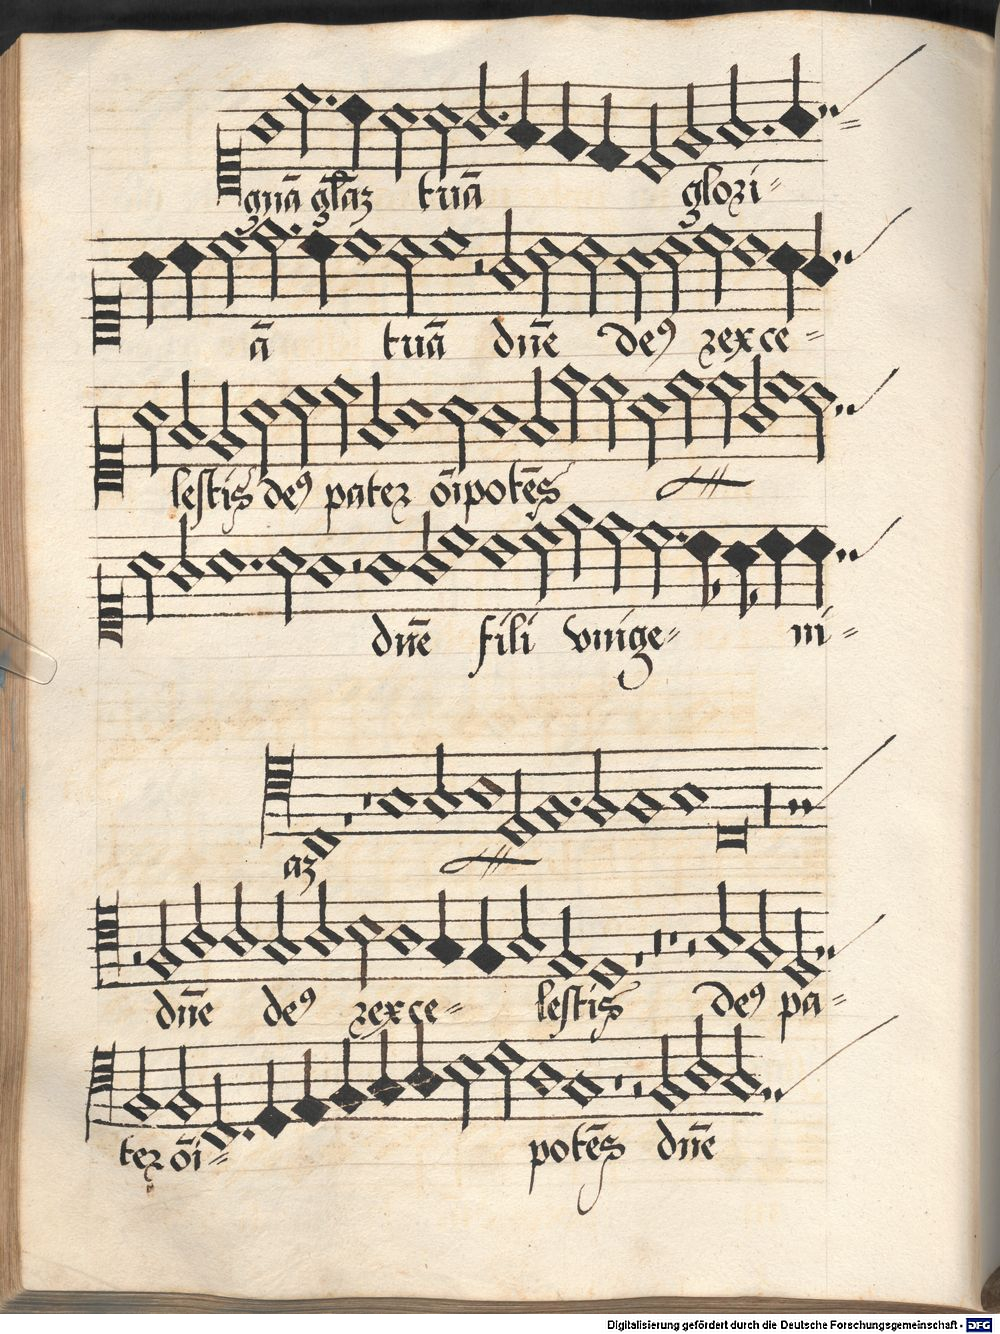 gnā glaz tuā glozi=
ā tuā dn̄e deꝰ zexce=
lestis deꝰ patez ōipotēs
dn̄e fili vnige= ni=
az
dn̄e deꝰ zexce= lestis deꝰ pa=
tez ōi= potēs dn̄e
Digitalisierung gefördert durch die Deutsche Forschungsgemeinschaft - DFG